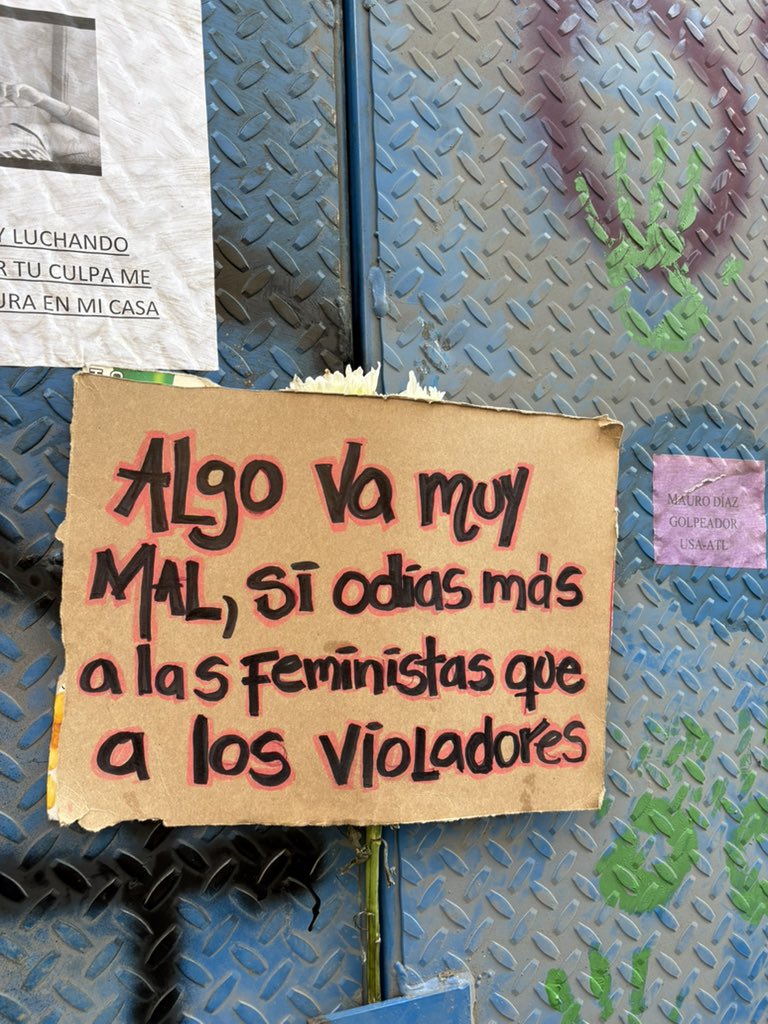 Y LUCHANDO
R TU CULPA ME
URA EN MI CASA
ALgo va muy
MAL, si odias más
a las Feministas que
a los VioLadores
MAURO DIAZ
GOLPEADOR
USA-ATL